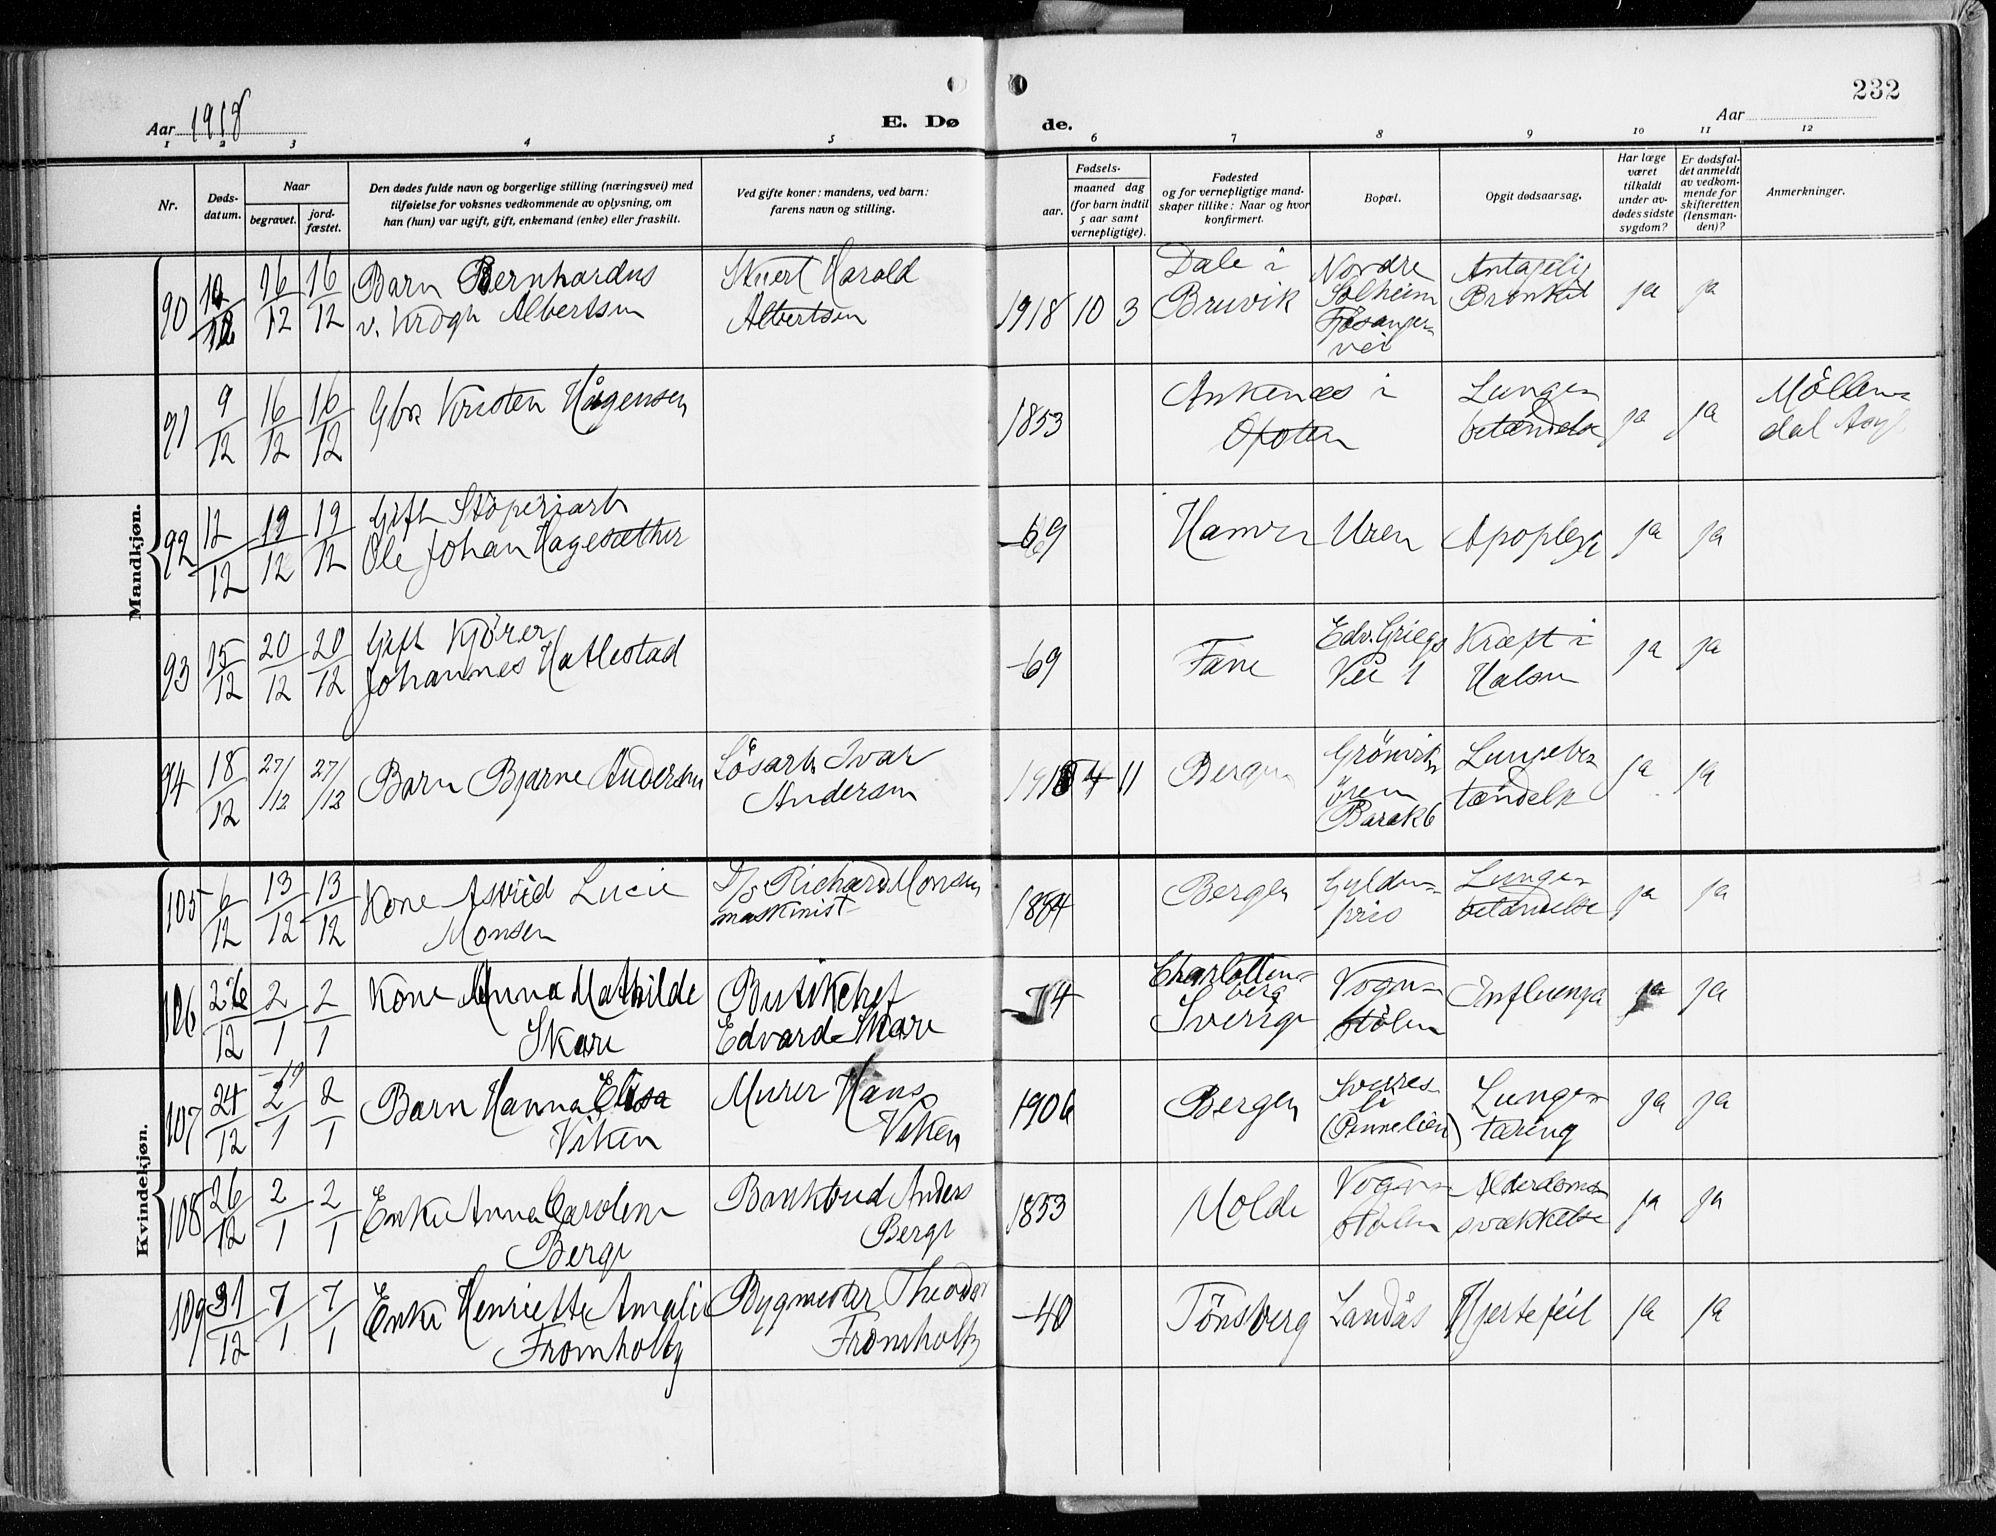 232
Aar 1918
E. Dø de.
Aar
1 2 3 4 5 6 7 8 9 10 11 12
Nr.
Døds-datum.
Naar
begravet.
jord-fæstet.
Den dødes fulde navn og borgerlige stilling (næringsvei) med
tilføielse for voksnes vedkommende av oplysning, om
han (hun) var ugift, gift, enkemand (enke) eller fraskilt.
Ved gifte koner: mandens, ved barn:
farens navn og stilling.
Fødsels-
aar.
maaned dag
(for barn indtil
5 aar samt
vernepligtige).
Fødested
og for vernepligtige mand-
skaper tillike: Naar og hvor
konfirmert.
Bopæl.
Opgit dødsaarsag.
Har læge
været
tilkaldt
under av-
dødes sidste
sygdom?
Er dødsfal-
det anmeldt
av vedkom-
mende for
skifteretten
(lensman-
den)?
Anmerkninger.
Mandkjøn.
90 10/12 16/12 16/12 Barn Bernhardus
v. Krogh Albertsen
Harald
Albertsen
1918 10 3
Dale i
Bruvik
Nordre
Solheim
Fjøsanger-
vei
Antagelig
Bronkit
ja ja
91 9/12 16/12 16/12 Kristen Hågensen
1853
Ankenæs i
Ofoten
Lunge-
betændelse
ja ja
Möllen-
dal Asyl
92 12/12 19/12 19/12 Gift Støperiarb
Ole Johan Hagesæther
-69
Hamre Uren Apoplexi ja ja
93 15/12 20/12 20/12 Gift Kjører
Johannes Hatlestad
-69
Fane
Edv. Griegs
Vei 1
Kræft i
Halsen
ja ja
94 18/12 27/12 27/12 Barn Bjarne Andersen
Løsarb. Ivar
Andersen
1918 4 11
Bergen
Grönvik
ören
Barak 6
Lungebe
tændelse
ja ja
Kvindekjøn.
105 6/12 13/12 13/12 Kone Astrid Lucie
Monsen
Richard Monsen
maskinist
1884
Bergen
Gylden-
pris
Lunge-
betændelse
ja ja
106 26/12 2/1 2/1 Kone Anna Mathilde
Skare
Butikchef
Edvard Skare
-74
Charlotten-
berg
Sverige
Vogn-
stølen
Influenza
ja ja
107 24/12 2/1 -19 2/1 Barn Hanna Elisa
Viken
Murer Hans
Viken
1906
Bergen
Sverres
li
Lunge-
tæring
ja ja
108 26/12 2/1 2/1 Enke Anna Caroline
Berge
Bankbud Anders
Berge
1853
Molde
Vogn-
stølen
Alderdoms-
svækkelse
ja ja
109 31/12 7/1 7/1 Enke Henriette Amalie
Fromholtz
Bygmester Theodor
Fromholtz
-40
Tönsberg Landås Hjertefeil ja ja